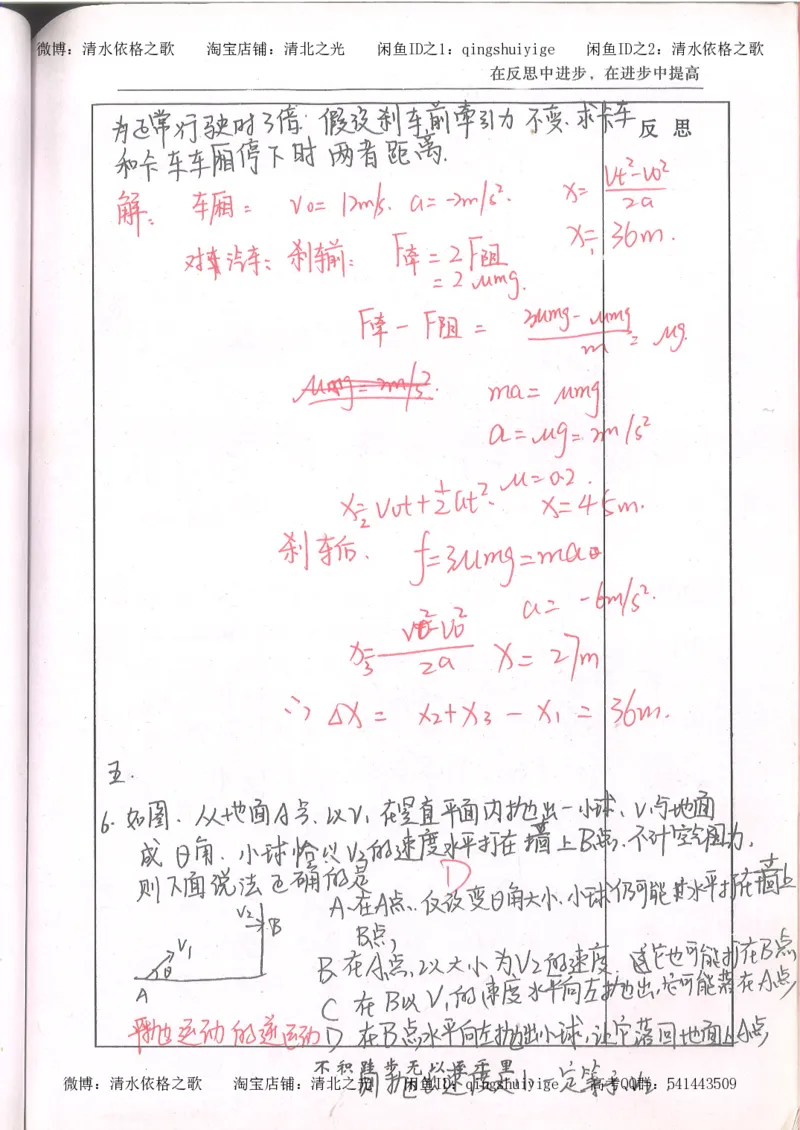 微博：清水依格之歌 淘宝店铺：清北之光 闲鱼ID之1：qingshuiyige 闲鱼ID之2：清水依格之歌
在反思中进步，在进步中提高
反 思
为正常行驶时3倍. 假设刹车前牵引力不变. 求卡车
和卡车车厢停下时两者距离.
解： 车厢： v0=12m/s. a=-2m/s². x= Vt²-V0² / 2a
x1=36m.
对汽车： 刹车前： F牵=2F阻
=2μmg.
F牵-F阻= 2μmg-μmg / m = μg.
μmg=2m/s².
ma=μmg
a=μg=2m/s²
μ=0.2.
x2=V0t+½at². x=45m.
刹车后. f=3μmg=ma
a=-6m/s².
x3= Vt²-V0² / 2a x=27m
∴ Δx = x2+x3-x1=36m.
五.
6. 如图. 从地面A点. 以V1在竖直平面内抛出一小球, V1与地面
成θ角. 小球恰以V2的速度水平打在墙上B点. 不计空气阻力,
则下面说法正确的是 D
V2 B
V1 θ
A
A. 在A点. 仅改变θ角大小. 小球仍可能水平打在墙上
B点,
B. 在A点, 以大小为V2的速度, 它也可能打在B点
C 在B以V1的速度水平向左抛出, 它可能落在A点
平抛运动的逆运动 D 在B点水平向左抛出小球, 让它落回地面A点
不积跬步无以至千里
则抛出速度 一定等于V2
微博：清水依格之歌 淘宝店铺：清北之光 闲鱼ID：qingshuiyige 备考QQ群：541443509